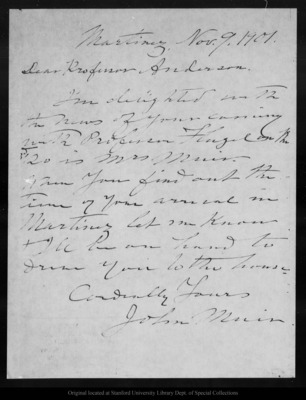 Martinez, Nov. 9, 1901.
Dear Professor Anderson.
I'm delighted with
the news of your coming
with Professor on the
20 is Mrs. Muir.
When you find out the
time of your arrival in
Martinez let me know
& I'll be on hand to
drive you to the house
Cordially Yours
John Muir
Original located at Stanford University Library Dept. of Special Collections